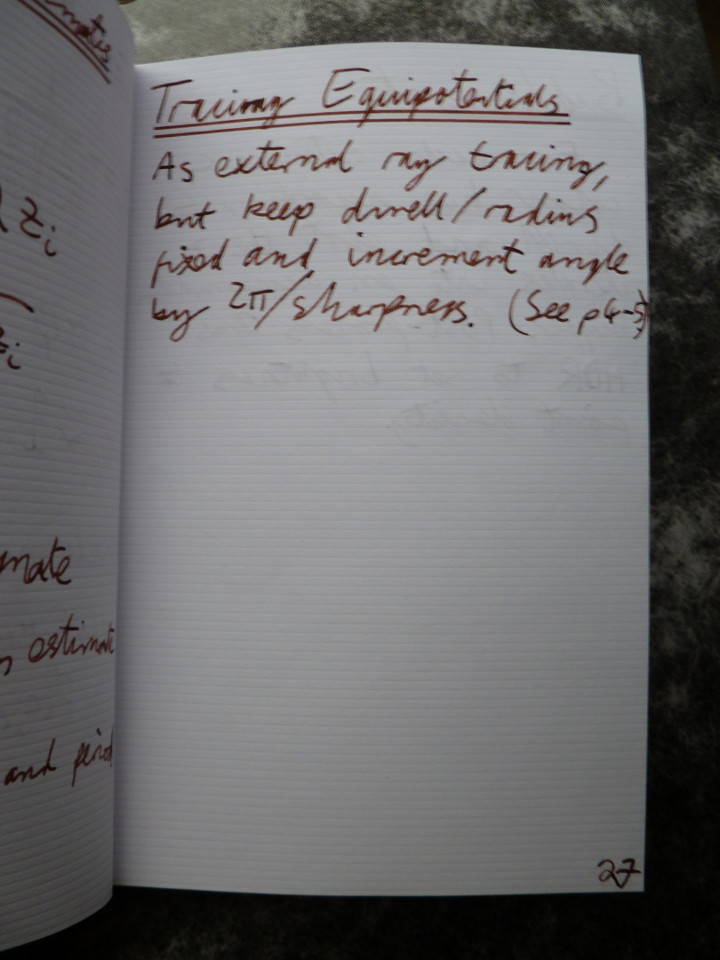 Zi
mate
estimate
and period
Tracing Equipotentials
As external ray tracing,
but keep dwell/radius
fixed and increment angle
by 2π/sharpness. (See p4-5)
27